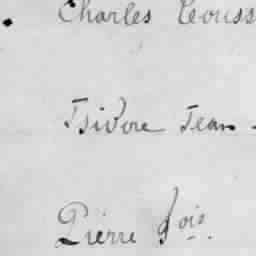 Charles Couss
Isidore Jean
Pierre fois